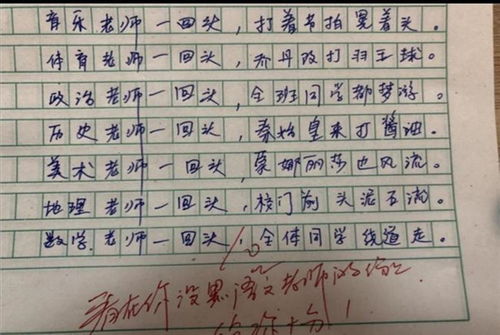 音乐老师一回头,打着节拍晃着头。
体育老师一回头,乔丹改打羽王球。
政治老师一回头,全班同学都梦游。
历史老师一回头,秦始皇来打酱油。
美术老师一回头,蒙娜丽莎也风流。
地理老师一回头,校门前头泥石流。
数学老师一回头,全体同学绕道走。
10
看在你没黑语文老师的份上
给你十分!